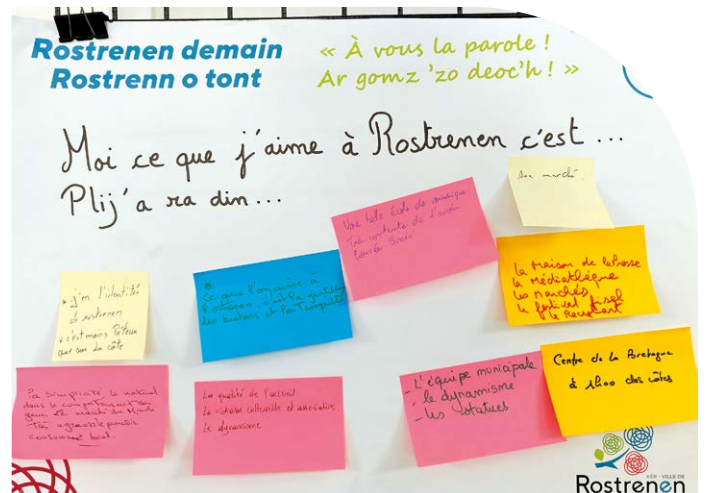 Rostrenen demain
Rostrenn o tont
« À vous la parole !
Ar gomz 'zo deoc'h ! »
Moi ce que j'aime à Rostrenen c'est ...
Plij'a ra din ...
Son marché
Une belle École de musique
Très contente de l'avoir
La Maison de la Presse
La Médiathèque
Les Marchés
le festival fisel
le
j'm l'identité
de rostrenen
c'est moins
que sur la côte
Ce que l'on aime à
Rostrenen, c'est la gentillesse
les bretons et la Tranquilité
La simplicité le naturel
dans le comportement des
gens le marché du Mardi
très agréable pouvoir
consommer local.
La qualité de l'accueil
La richesse culturelle et associative
Le dynamisme
- L'équipe municipale
- le dynamisme
- les statues
Centre de la Bretagne
à 1h00 des côtes
KÊR - VILLE DE
Rostrenen